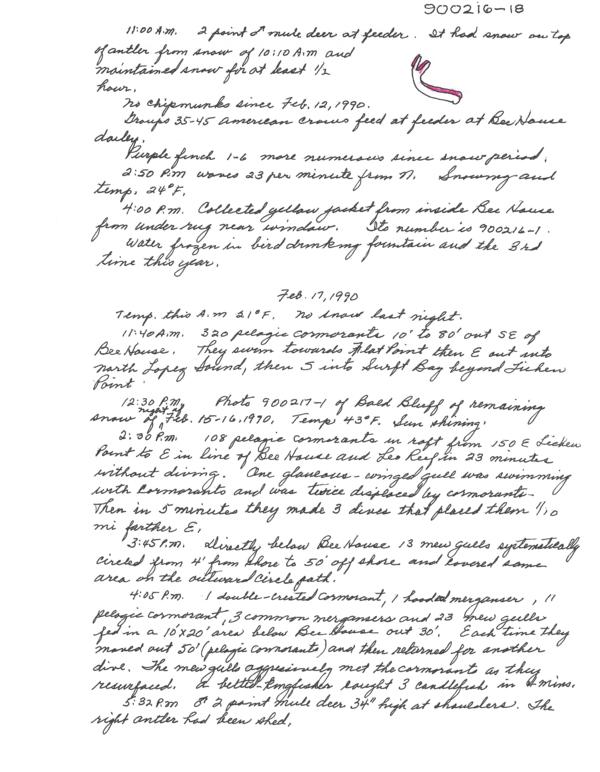 900216-18
11:00 A.M. 2 point ♂ mule deer at feeder. It had snow on top
of antler from snow of 10:10 A.m and
maintained snow for at least 1/2
hour.
No chipmunks since Feb. 12, 1990.
Groups 35-45 american crows feed at feeder at Bee House
dailey.
Purple finch 1-6 more numerous since snow period.
2:50 P.m waves 23 per minute from N. Snowing and
temp. 24°F.
4:00 P.m. Collected yellow jacket from inside Bee House
from under rug near window. Its number is 900216-1.
Water frozen in bird drinking fountain and the 3rd
time this year.
Feb. 17, 1990
Temp. this A.m 21°F. No snow last night.
11:40 A.m. 320 pelagic cormorants 10' to 80' out SE of
Bee House. They swim towards Flat Point then E out into
North Lopez Sound, then S into Swift Bay beyond Lichen
Point.
12:30 P.m. Photo 900217-1 of Bald Bluff of remaining
snow of night of Feb. 15-16, 1990. Temp 43°F. Sun shining.
2:30 P.m. 108 pelagic cormorants in raft from 150 E Lichen
Point to E in line of Bee House and Leo Reef in 23 minutes
without diving. One glaucous-winged gull was swimming
with Cormorants and was twice displaced by cormorants.
Then in 5 minutes they made 3 dives that placed them 1/10
mi farther E.
3:45 P.m. Directly below Bee House 13 mew gulls systematically
circled from 4' from shore to 50' off shore and covered same
area on the outward circle path.
4:05 P.m. 1 double-crested cormorant, 1 hooded merganser, 11
pelagic cormorant, 3 common mergansers and 23 mew gulls
fed in a 10'x20' area below Bee House out 30'. Each time they
moved out 50' (pelagic cormorants) and then returned for another
dive. The mew gulls aggressively met the cormorants as they
resurfaced. a belted-kingfisher caught 3 candlefish in mins.
5:32 P.m ♂ 2 point mule deer 34" high at shoulders. The
right antler had been shed.